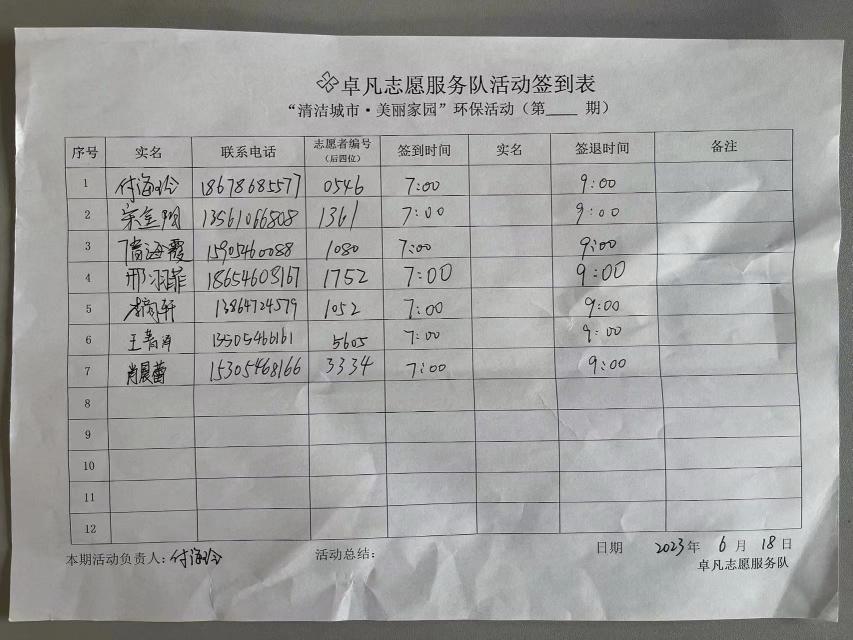 卓凡志愿服务队活动签到表
“清洁城市·美丽家园”环保活动（第____ 期）
序号 实名 联系电话 志愿者编号（后四位） 签到时间 实名 签退时间 备注
1 付海玲 18678685577 0546 7:00 9:00
2 宋金 13561066808 1361 7:00 9:00
3 海霞 15905460088 1080 7:00 9:00
4 邢羽菲 18654608167 1752 7:00 9:00
5 轩 13864724579 1052 7:00 9:00
6 王青 13505466161 5605 7:00 9:00
7 肖晨蕾 15305468166 3334 7:00 9:00
8
9
10
11
12
本期活动负责人：付海玲 活动总结： 日期 2023年 6 月 18 日
卓凡志愿服务队